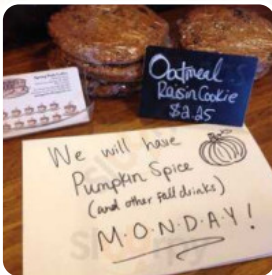 Oatmeal
Raisin Cookie
$2.25
We will have
Pumpkin Spice
(and other fall drinks)
M·O·N·D·A·Y!